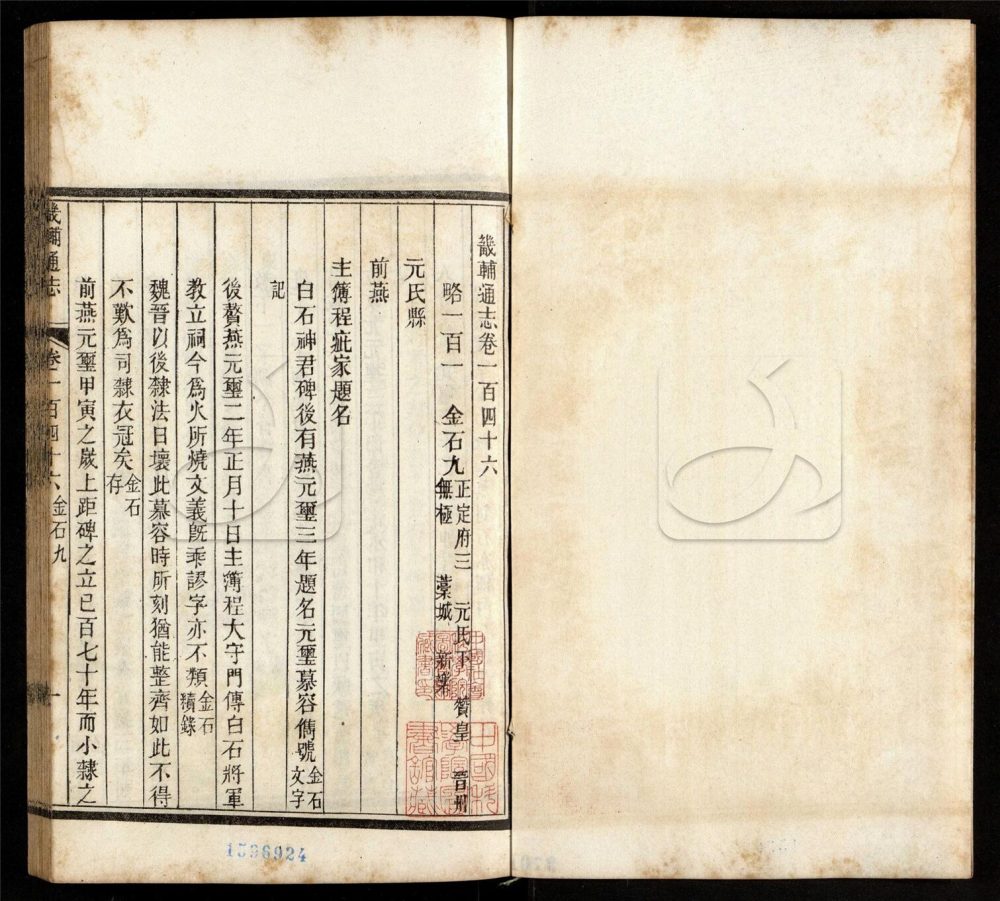 畿輔通志卷一百四十六
略一百一 金石九 正定府三 元氏下 贊皇 晉州
無極 藁城 新樂
元氏縣
前燕
主簿程疵家題名
白石神君碑後有燕元璽三年題名元璽慕容儁號金石文字
記
後贅燕元璽二年正月十日主簿程大守門傳白石將軍
教立祠今爲火所燒文義旣乖謬字亦不類金石續錄
魏晉以後隸法日壞此慕容時所刻猶能整齊如此不得
不歎爲司隸衣冠矣金石存
前燕元璽甲寅之歲上距碑之立已百七十年而小隸之
畿輔通志
卷一百四十六 金石九
一
1596924